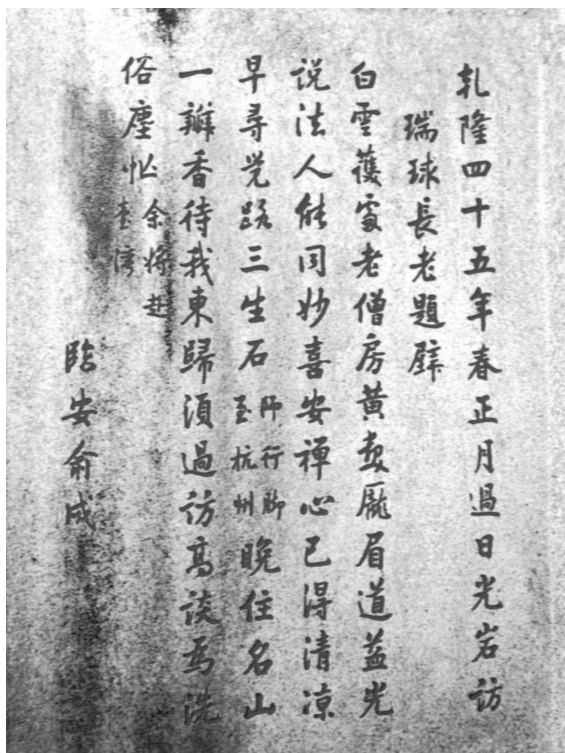 乹隆四十五年春正月過日光岩訪
瑞球長老題壁
白雲護處老僧房黃髮龐眉道益光
説法人能同妙喜安禪心已得清凉
早尋觉路三生石師行脚至杭州晚住名山
一瓣香待我東歸須過訪高談為洗
俗塵忙余將赴臺灣
臨安俞成